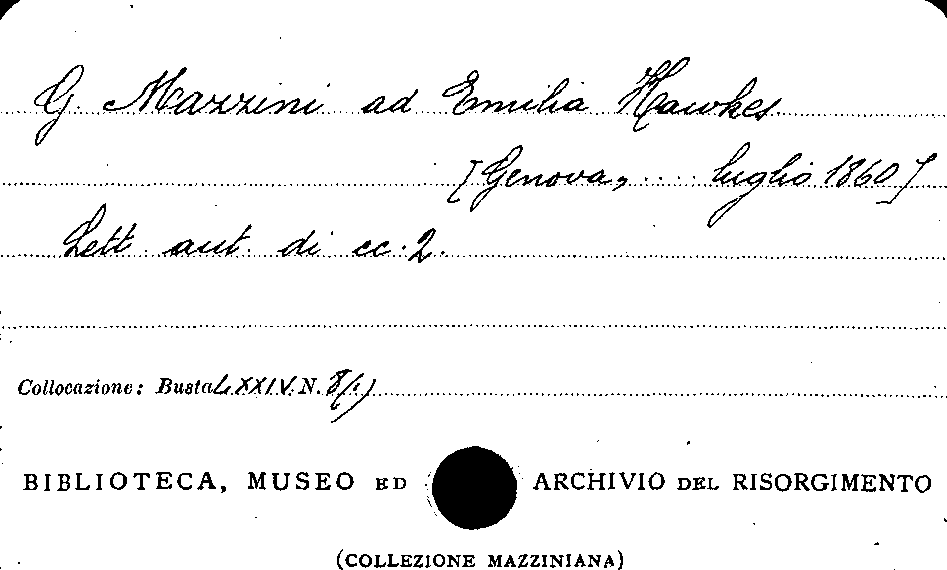 G. Mazzini ad Emilia Hawkes.
[Genova, .... luglio 1860]
Lett. aut. di cc. 2.
Collocazione: Busta LXXIV. N. 8(1)
BIBLIOTECA, MUSEO ED ARCHIVIO DEL RISORGIMENTO
(COLLEZIONE MAZZINIANA)